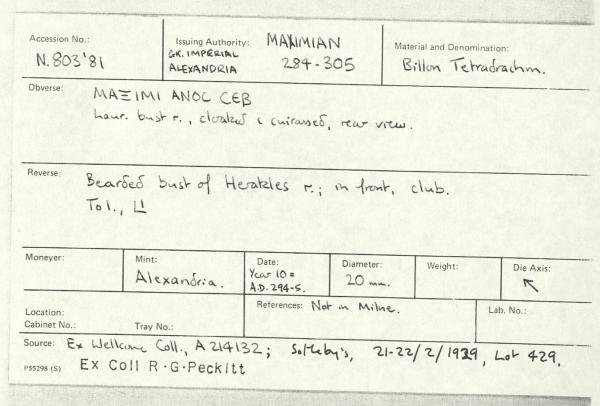 Accession No.:
N.803'81
Issuing Authority: MAXIMIAN
GK. IMPERIAL
ALEXANDRIA 284-305
Material and Denomination:
Billon Tetradrachm.
Obverse: MAΞIMI ANOC CEB
laur. bust r., cloaked & cuirassed, rear view.
Reverse:
Bearded bust of Herakles r.; in front, club.
To l., LI
Moneyer:
Mint:
Alexandria.
Date:
Year 10 =
A.D. 294-5.
Diameter:
20 mm.
Weight:
Die Axis:
↖
Location:
Cabinet No.: Tray No.:
References: Not in Milne.
Lab. No.:
Source: Ex Wellcome Coll., A 214132; Sotheby's, 21-22/2/1929, Lot 429.
P55298 (S) Ex Coll R.G.Peckitt